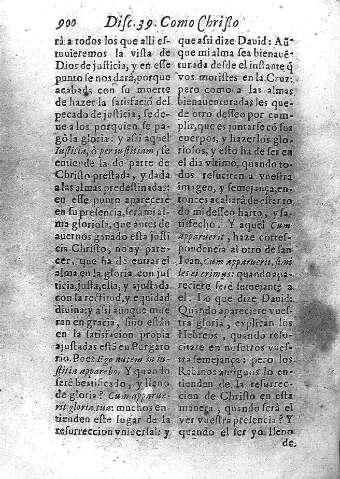 900 Disc. 39. Como Christo
rá a todos los que alli es-
tuvieremos la vista de
Dios de justicia, y en esse
punto se nos dará, porque
acabada con su muerte
de hazer la satisfació del
pecado de justicia, se de-
ve a los por quien se pa-
gò la gloria: y assi aquel
Iustitia, ò per iustitiam, se
entiende la de parte de
Christo prestada, y dada
a las almas predestinadas:
en esse punto apareceré
en su presencia, será mi al-
ma gloriosa, que antes de
avernos ganado esta justi
cia Christo, no ay pare-
cer, que ha de entrar el
alma en la gloria con jus-
ticia, justa, ella, y ajustada
con la rectitud, y equidad
divina: y assi aunque mue
ran en gracia, sino están
en la satisfacion propia
ajustadas està en Purgato
rio. Pues Ego autem in iu-
stitia apparebo. Y quando
seré beatificado, y lleno
de gloria? Cum apparue-
rit gloria tua: muchos en-
tienden este lugar de la
resurreccion universal: y
que assi dize David: Aũ-
que mi alma sea bienavé-
turada desde el instante q̃
vos moristes en la Cruz:
pero como a las almas
bienaventuradas les que-
de otro desseo por cum-
plir, que es juntarse có sus
cuerpos, y hazerlos glo-
riosos, y esto ha de ser en
el dia ultimo, quando to-
dos resuciten a vuestra
imagen, y semejança, en-
tonces acabará de estar to
do mi desseo harto, y sa-
tisfecho. Y aquel Cum
apparuerit, haze corres-
pondencia al otro de san
Ioan, Cum apparuerit, simi-
les ei erimus: quando apa-
reciere seré semejante a
el. Lo que dize David:
Quando apareciere vues-
tra gloria, explican los
Hebreos, quando resu-
citare en nosotros vues-
tra semejança: pero los
Rabinos antiguos lo en-
tienden de la resurrec-
cion de Christo en esta
manera, quando será el
ver vuestra presencia? Y
quando el ser yo lleno
de,